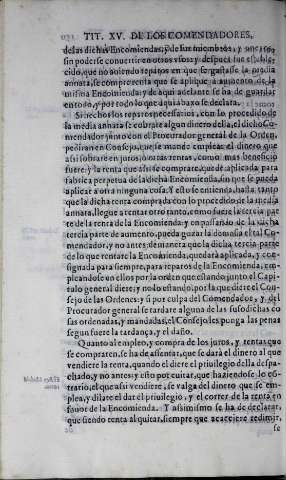 TIT. XV. DE LOS COMENDADORES,
de las dichas Encomiendas, y de sus
sin poderse convertir en otros usos: y despues fue estable-
cido, que no aviendo reparos en que se gastasse la media
annata, se compre renta que se aplique à aumento de la
misma Encomienda: y de aqui adelante se ha de guardar
en todo, y por todo lo que aqui abaxo se declara.
Si hechos los reparos necessarios, con lo procedido de
la media annata se cobrare algun dinero della, el dicho Co-
mendador junto con el Procurador general de la Orden
pediran en Consejo, que se mande emplear el dinero que
assi sobrare en juros, ò otras rentas, como mas beneficio
fuere; y la renta que assi se comprare, quede aplicada para
fabrica perpetua de la dicha Encomienda, sin que se pueda
aplicar à otra ninguna cosa. Y esto se entienda, hasta tanto
que la dicha renta comprada con lo procedido de la media
annata, llegue à rentar otro tanto, como fuere la tercia par
te de la renta de la Encomienda: y en passando de la dicha
tercia parte de aumento, pueda gozar la demasia el tal Co-
mendador, y no antes: de manera que la dicha tercia parte
de lo que rentare la Encomienda, quedarà aplicada, y con-
signada para siempre, para reparos de la Encomienda, em-
pleandose en ellos por la orden que estando junto el Capi-
tulo general diere; y no lo estando, por la que diere el Con-
sejo de las Ordenes: y si por culpa del Comendador, y del
Procurador general se tardare alguna de las susodichas co
sas ordenadas, y mandadas, el Consejo les ponga las penas
segun fuere la tardança, y el daño.
Quanto al empleo, y compra de los juros, y rentas que
se compraren, se ha de assentar, que se darà el dinero al que
vendiere la renta, quando el diere el privilegio della despa-
chado, y no antes: y esto por evitar, que haziendose lo co-
trario, el que assi vendiere, se valga del dinero que se em-
plea, y dilate el dar el privilegio, y el correr de la renta en
favor de la Encomienda. Y assimismo se ha de declarar,
que siendo renta al quitar, siempre que acaeciere redimir,
se